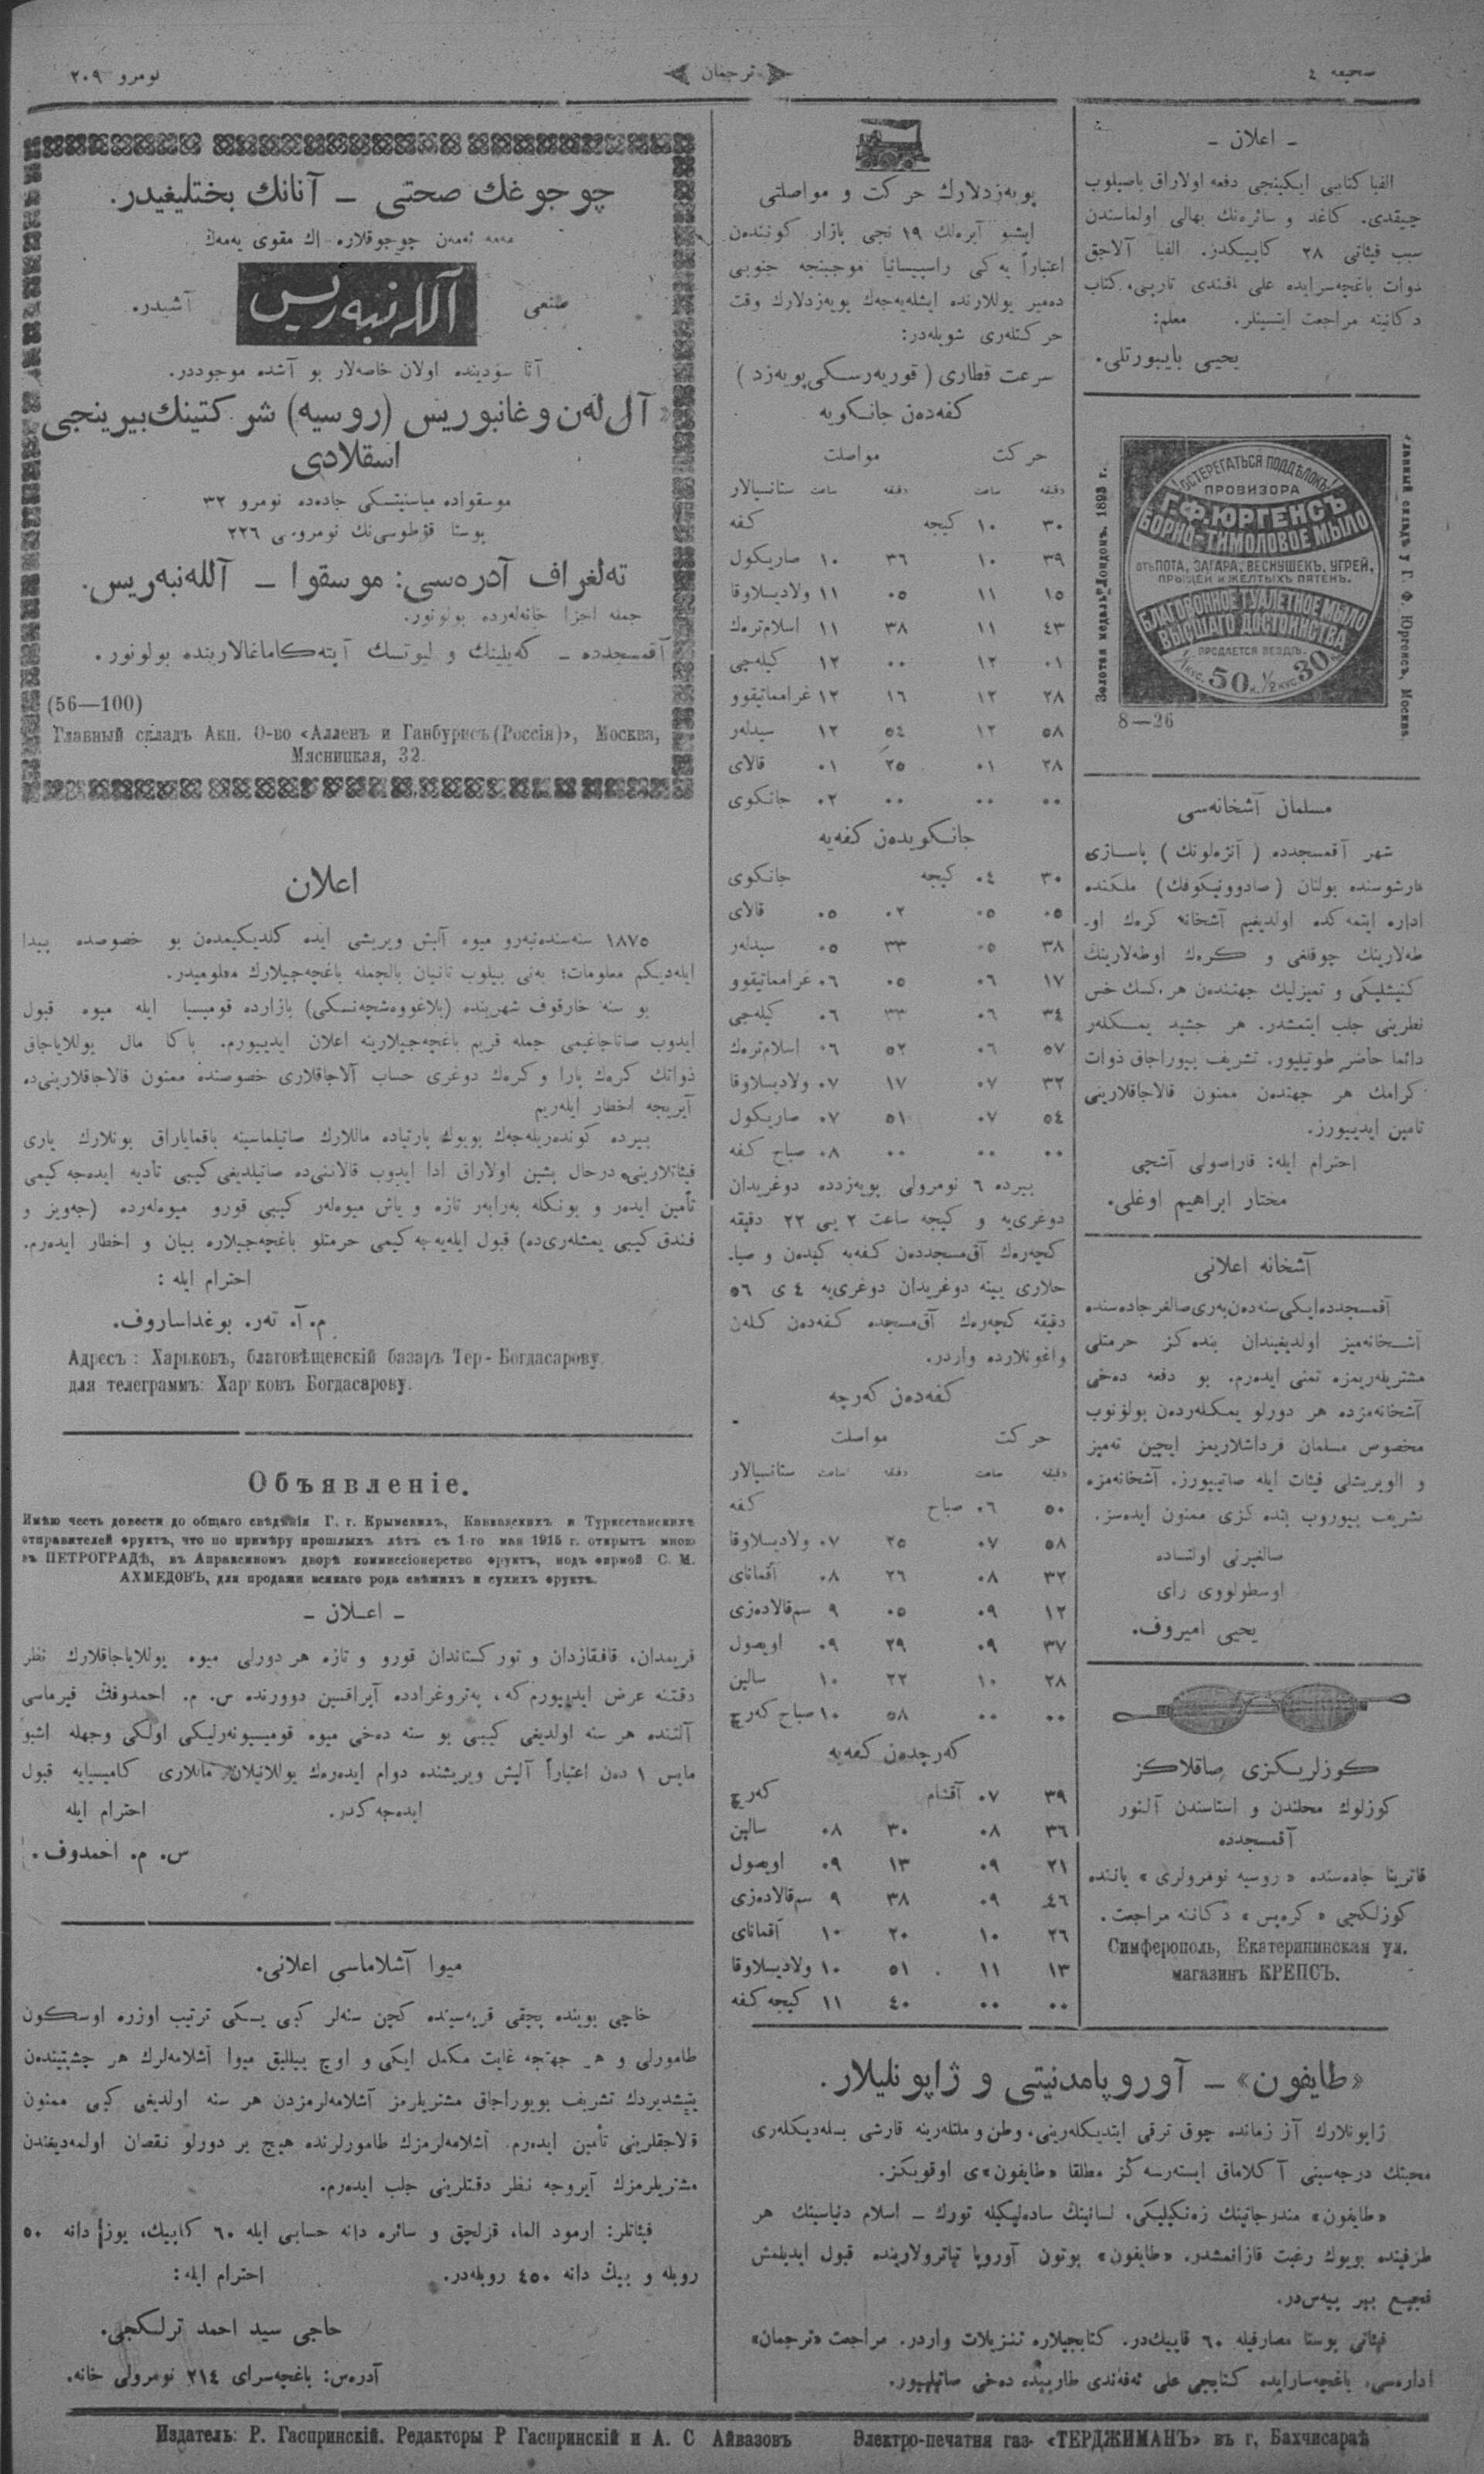 صحیفه ٤
ترجمان
نومرو ٢٠٩
ـ اعلان ـ
الفبا كتابیی ایكینجی دفعه اولاراق باصیلوب
چیقدی. كاغد و سائره‌نك بهالی اولماسندن
سبب فیئاتی ٢٨ كاپیكدر. الفبا آلاجق
ذوات باغچه‌سرایده علی افندی تارپی كتاب
دكانینه مراجعت ایتسینلر. معلم:
یحیی بایبورتلی.
Золотая медаль Лондонъ. 1893 г.
ОСТЕРЕГАТЬСЯ ПОДДѢЛОКЪ!
ПРОВИЗОРА
Г.Ф.ЮРГЕНСЪ
БОРНО-ТИМОЛОВОЕ МЫЛО
отъ ПОТА, ЗАГАРА, ВЕСНУШЕКЪ, УГРЕЙ,
ПРЫЩЕЙ И ЖЕЛТЫХЪ ПЯТЕНЪ.
БЛАГОВОННОЕ ТУАЛЕТНОЕ МЫЛО
ВЫСШАГО ДОСТОИНСТВА
ПРОДАЕТСЯ ВЕЗДѢ.
1/1 кус. 50 к. 1/2 кус. 30 к.
Главный складъ у Г. Ф. Юргенсъ, Москва.
8—26
مسلمان آشخانه‌سی
شهر آقمسجدده ( آنژه‌لونك ) پاساژی
قارشوسنده بولنان (صادوونیكوفك) ملكنده
اداره ایتمه‌كده اولدیغیم آشخانه كرك او-
طه‌لارینك چوقلغی و كرك اوطه‌لارینك
كنیشلیكی و تمیزلیك جهتندن هر كسك خس
نظرینی جلب ایتمشدر. هر جشید یمكلەر
دائما حاضر طوتیلیور. تشریف بیوراجاق ذوات
كرامك هر جهتدن ممنون قالاجاقلارینی
تامین ایدییورز.
احترام ایله: قاراصولی آشجی
مختار ابراهیم اوغلی.
آشخانه اعلانی
آقمسجدده ایكی سنه‌دن بەری صالغر جاده‌سنده
آشخانه‌میز اولدیغیندان بنده‌كز حرمتلی
مشتریلەریمزه تمنی ایدەرم. بو دفعه دەخی
آشخانه‌مزده هر دورلو یمكلەردن بولونوب
مخصوص مسلمان قرداشلاریمز ایچین تەمیز
و الویریشلی فیئات ایله صاتییورز. آشخانه‌مزه
تشریف بیوروب بنده كزی ممنون ایدەسز.
صالغیرنی اولتساده
اوسطولووی رای
یحیی امیروف.
كوزلریكزی صاقلاكز
كوزلوك محلندن و استاسندن آلنور
آقمسجدده
قاترینا جاده‌سنده «روسیه نومرولری» یاننده
كوزلكچی «كرەپس» دكاننه مراجعت.
Симферополь, Екатерининская ул.
магазинъ КРЕПСЪ.
پویەزدلارك حركت و مواصلتی
ایشبو آیرەلك ١٩ نجی بازار كوننده‌ن
اعتباراً یەكی راسپیسانیا موجبنجه جنوبی
دەمیر یوللارنده ایشلەیەجەك پویەزدلارك وقت
حركتلەری شویلەدر:
سرعت قطاری ( قوریەرسكی پویەزد )
كفه‌دەن جانكویه
حركت مواصلت
دقیقه ساعت دقیقه ساعت ستانسیالار
٣٠ ١٠ كیجه كفه
٣٩ ١٠ ٣٦ ١٠ صاریكول
١٥ ١١ ٠٥ ١١ ولادیسلاوقا
٤٣ ١١ ٣٨ ١١ اسلام‌ترەك
٠١ ١٢ ٠٠ ١٢ كیلەجی
٢٨ ١٢ ١٦ ١٢ غراماتیقوو
٥٨ ١٢ ٥٤ ١٢ سیدلەر
٢٨ ٠١ ٢٥ ٠١ قالای
٠٠ ٠٠ ٠٠ ٠٢ جانكوی
جانكویدەن كفه‌یه
٣٠ ٠٤ كیجه جانكوی
٠٥ ٠٥ ٠٢ ٠٥ قالای
٣٨ ٠٥ ٣٣ ٠٥ سیدلەر
١٧ ٠٦ ٠٥ ٠٦ غراماتیقوو
٣٤ ٠٦ ٣٣ ٠٦ كیلەجی
٥٧ ٠٦ ٥٢ ٠٦ اسلام‌ترەك
٣٢ ٠٧ ١٧ ٠٧ ولادیسلاوقا
٥٤ ٠٧ ٥١ ٠٧ صاریكول
٠٠ ٠٠ ٠٠ ٠٨ صباح كفه
بیرده ٦ نومرولی پویەزدده دوغریدان
دوغری‌یه و كیجه ساعت ٢ یی ٢٢ دقیقه
كچەرەك آق‌مسجددەن كفه‌یه كیدەن و صبا-
حلاری یینه دوغریدان دوغری‌یه ٤ ی ٥٦
دقیقه كچەرەك آق‌مسجده كفه‌دەن كلەن
واغونلارده واردر.
كفه‌دەن كەرچه
حركت مواصلت
دقیقه ساعت دقیقه ساعت ستانسیالار
٥٠ ٠٦ صباح كفه
٥٨ ٠٧ ٢٥ ٠٧ ولادیسلاوقا
٣٢ ٠٨ ٢٦ ٠٨ آقمانای
١٢ ٠٩ ٠٥ ٩ سم‌قالادەزی
٣٧ ٠٩ ٢٩ ٠٩ اویصول
٢٨ ١٠ ٢٢ ١٠ سالین
٠٠ ٠٠ ٥٨ ١٠ صباح كەرچ
كەرچدەن كفه‌یه
٣٩ ٠٧ آقشام كەرچ
٣٦ ٠٨ ٣٠ ٠٨ سالین
٢١ ٠٩ ١٣ ٠٩ اویصول
٤٦ ٠٩ ٣٨ ٩ سم‌قالادەزی
٢٦ ١٠ ٢٠ ١٠ آقمانای
١٣ ١١ ٥١ ١٠ ولادیسلاوقا
٠٠ ٠٠ ٤٠ ١١ كیجه كفه
چوجوغك صحتی ـ آنانك بختلیغیدر.
مەمە ئەمەن چوجوقلاره اك مقوی یەمەك
طنعی آللەنبەریس آشیدر.
آنا سودینده اولان خاصه‌لار بو آشده موجوددر.
«آل‌لەن و غانبوریس (روسیه) شركتینك بیرینجی
اسقلادی
موسقواده میاسنیتسكی جادەدە نومرو ٣٢
پوستا قوطوسی‌نك نومروسی ٢٢٦
تەلغراف آدرەسی: موسقوا ـ آللەنبەریس.
جمله اجزا خانه‌لەرده بولونور.
آقمسجدده ـ كەیلینك و لیوتسك آپتەكاماغالارینده بولونور.
(56—100)
Главный складъ Акц. О-во «Алленъ и Ганбурисъ (Россія)», Москва,
Мясницкая, 32.
اعلان
١٨٧٥ سنه‌سندەنبەرو میوه آلیش ویریشی ایده كلدیكیمدەن بو خصوصده پیدا
ایلەدیكم معلومات؛ بەنی بیلوب تانیان بالجمله باغچه‌جیلارك معلومیدر.
بو سنه خارقوف شهرینده (بلاغووەشچەنسكی) بازارده قومیسیا ایله میوه قبول
ایدوب صاتاجاغیمی جمله قریم باغچه‌جیلارینه اعلان ایدییورم. باكا مال یوللایاجاق
ذواتك كرەك پارا و كرەك دوغری حساب آلاجاقلاری خصوصنده ممنون قالاجاقلارینی‌ده
آیریجه اخطار ایلەریم
بیرده كوندەریلەجەك بویوك پارتیاده ماللارك صاتیلماسینه باقمایاراق بونلارك یاری
فیئاتلارینی درحال پشین اولاراق ادا ایدوب قالاننی‌ده صاتیلدیغی كیبی تأدیه ایدەجه‌كیمی
تأمین ایدەر و بونكله بەرابەر تازه و یاش میوه‌لەر كیبی قورو میوه‌لەرده (جەویز و
فندق كیبی یمشلەری‌ده) قبول ایلەیەجه‌كیمی حرمتلو باغچه‌جیلاره بیان و اخطار ایدەرم.
احترام ایله :
م. آ. تەر. بوغداساروف.
Адресъ: Харьковъ, благовѣщенскій базаръ Тер-Богдасарову.
для телеграммъ: Харьковъ Богдасарову.
Объявленіе.
Имѣю честь довести до общаго свѣдѣнія Г. г. Крымскихъ, Кавказскихъ и Туркестанскихъ
отправителей фруктъ, что по примѣру прошлыхъ лѣтъ съ 1-го мая 1915 г. открытъ мною
въ ПЕТРОГРАДѢ, въ Апраксиномъ дворѣ коммиссіонерство фруктъ, подъ фирмой С. М.
АХМЕДОВЪ, для продажи всякаго рода свѣжихъ и сухихъ фруктъ.
ـ اعلان ـ
قریمدان، قافقازدان و توركستاندان قورو و تازه هر دورلی میوه یوللایاجاقلارك نظر
دقتنه عرض ایدییورم كه، پەتروغرادده آپراقسین دوورنده س. م. احمدوفك فیرماسی
آلتنده هر سنه اولدیغی كیبی بو سنه دەخی میوه قومیسیونەرلیكی اولكی وجهله اشبو
مایس ١ دەن اعتباراً آلیش ویریشنده دوام ایدەرەك یوللانیلان ماللاری كامیسیایه قبول
ایدەجه‌كدر. احترام ایله
س. م. احمدوف.
میوا آشلاماسی اعلانی.
خاجی بوینده بچقی قریه‌سینده كچن سنه‌لر كبی یسكی ترتیب اوزره اوسكون
طامورلی و هر جهتجه غایت مكمل ایكی و اوچ ییللیق میوا آشلامه‌لرك هر جشیتیندەن
یتیشدیردك تشریف بویوراجاق مشتریلرمز آشلامه‌لرمزدن هر سنه اولدیغی كبی ممنون
قالاجقلرینی تأمین ایدەرم. آشلامه‌لرمزك طامورلرنده هیچ بر دورلو نقصان اولمه‌دیغندن
مشتریلرمزك آیروجه نظر دقتلرینی جلب ایدەرم.
فیئاتلر: ارمود الما، قزلچق و سائره دانه حسابی ایله ٦٠ كاپیك، یوز دانه ٥٠
روبله و بیك دانه ٤٥٠ روبله‌در. احترام ایله:
حاجی سید احمد ترلكچی.
آدرەس: باغچه‌سرای ٢١٤ نومرولی خانه.
«طایفون» ـ آوروپا مدنیتی و ژاپونلیلار.
ژاپونلارك آز زمانده چوق ترقی ایتدیكلەرینی، وطن و ملتلەرینه قارشی بسله‌دیكلەری
محبتك درجه‌سینی آكلاماق ایستەرسه‌كز مطلقا «طایفون»ی اوقویكز.
«طایفون» مندرجاتینك زەنكینلیكی، لسانینك ساده‌لیكیله تورك ـ اسلام دنیاسینك هر
طرفینده بویوك رغبت قازانمشدر. «طایفون» بوتون آوروپا تیاترولارینده قبول ایدیلمش
فجیع بیر پیەس‌در.
فیئاتی پوستا مصارفیله ٦٠ قاپیك‌در. كتابجیلاره تنزیلات واردر. مراجعت «ترجمان»
اداره‌سی، باغچه‌سارایده كتابجی علی ئەفەندی طارپیده دەخی صاتیلییور.
Издатель: Р. Гаспринскій. Редакторы Р Гаспринскій и А. С Айвазовъ
Электро-печатня газ. «ТЕРДЖИМАНЪ» въ г. Бахчисараѣ